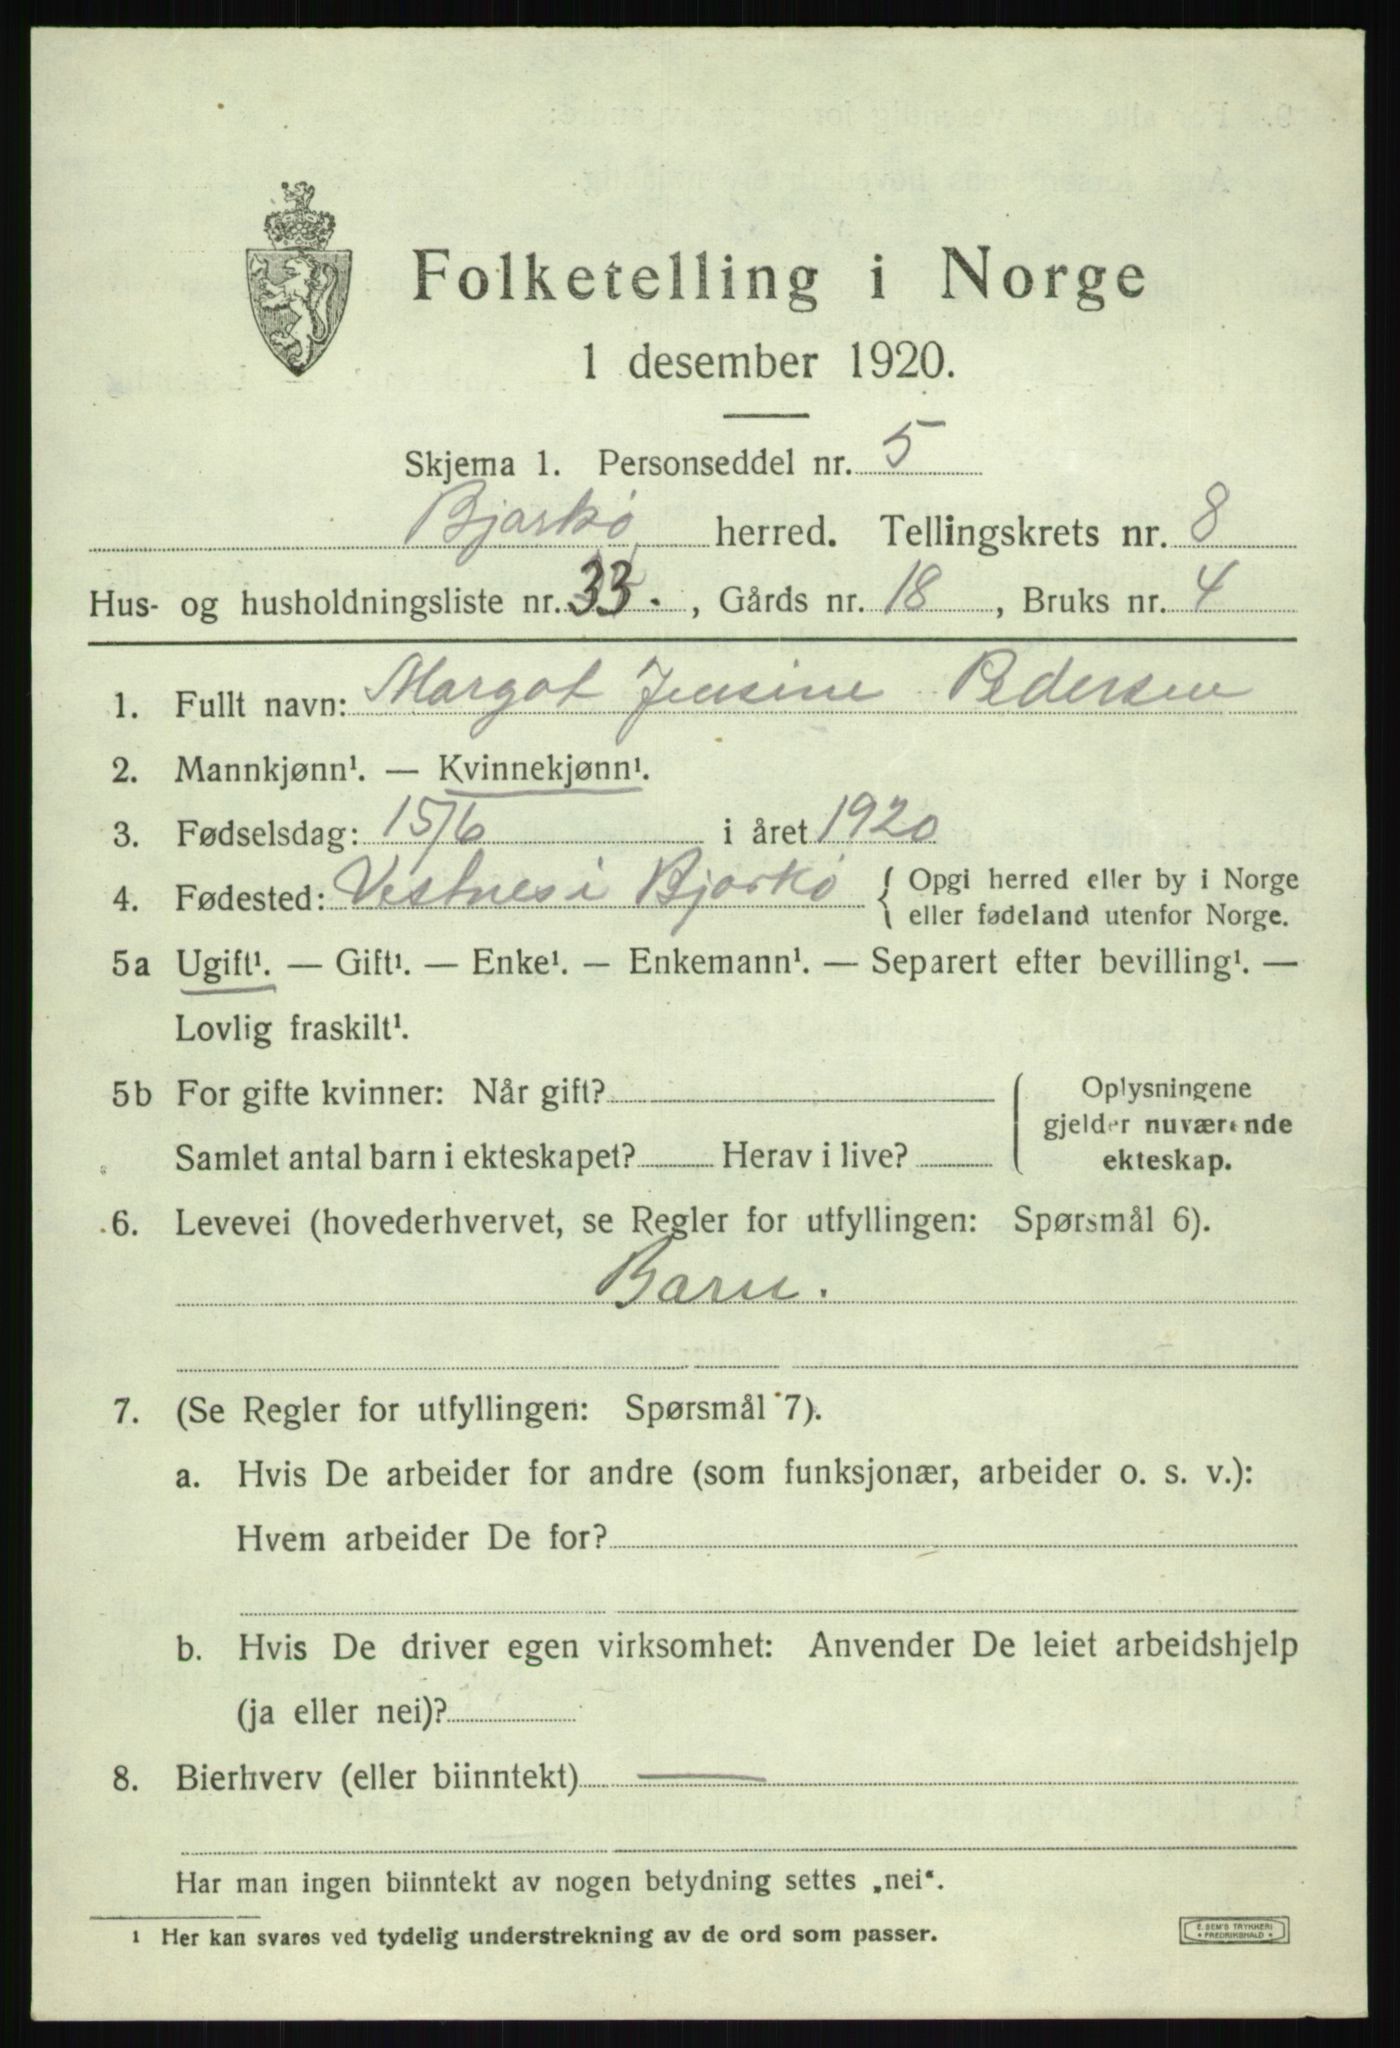 Folketelling i Norge
1 desember 1920.
Skjema 1. Personseddel nr. 5
Bjarkø herred. Tellingskrets nr. 8
Hus- og husholdningsliste nr. 33. , Gårds nr. 18 , Bruks nr. 4
1. Fullt navn: Margot Jensine Pedersen
2. Mannkjønn¹. — Kvinnekjønn¹.
3. Fødselsdag: 15/6 i året 1920
4. Fødested: Vestnes i Bjarkø { Opgi herred eller by i Norge
eller fødeland utenfor Norge.
5a Ugift¹. — Gift¹. — Enke¹. — Enkemann¹. — Separert efter bevilling¹. —
Lovlig fraskilt¹.
5b For gifte kvinner: Når gift?
Samlet antal barn i ekteskapet? Herav i live?
Oplysningene
gjelder nuværende
ekteskap.
6. Levevei (hovederhvervet, se Regler for utfyllingen: Spørsmål 6).
Barn.
7. (Se Regler for utfyllingen: Spørsmål 7).
a. Hvis De arbeider for andre (som funksjonær, arbeider o. s. v.):
Hvem arbeider De for?
b. Hvis De driver egen virksomhet: Anvender De leiet arbeidshjelp
(ja eller nei)?
8. Bierhverv (eller biinntekt) —
Har man ingen biinntekt av nogen betydning settes „nei“.
1 Her kan svares ved tydelig understrekning av de ord som passer.
E. SEM'S TRYKKERI
* FREDRIKSHALD *